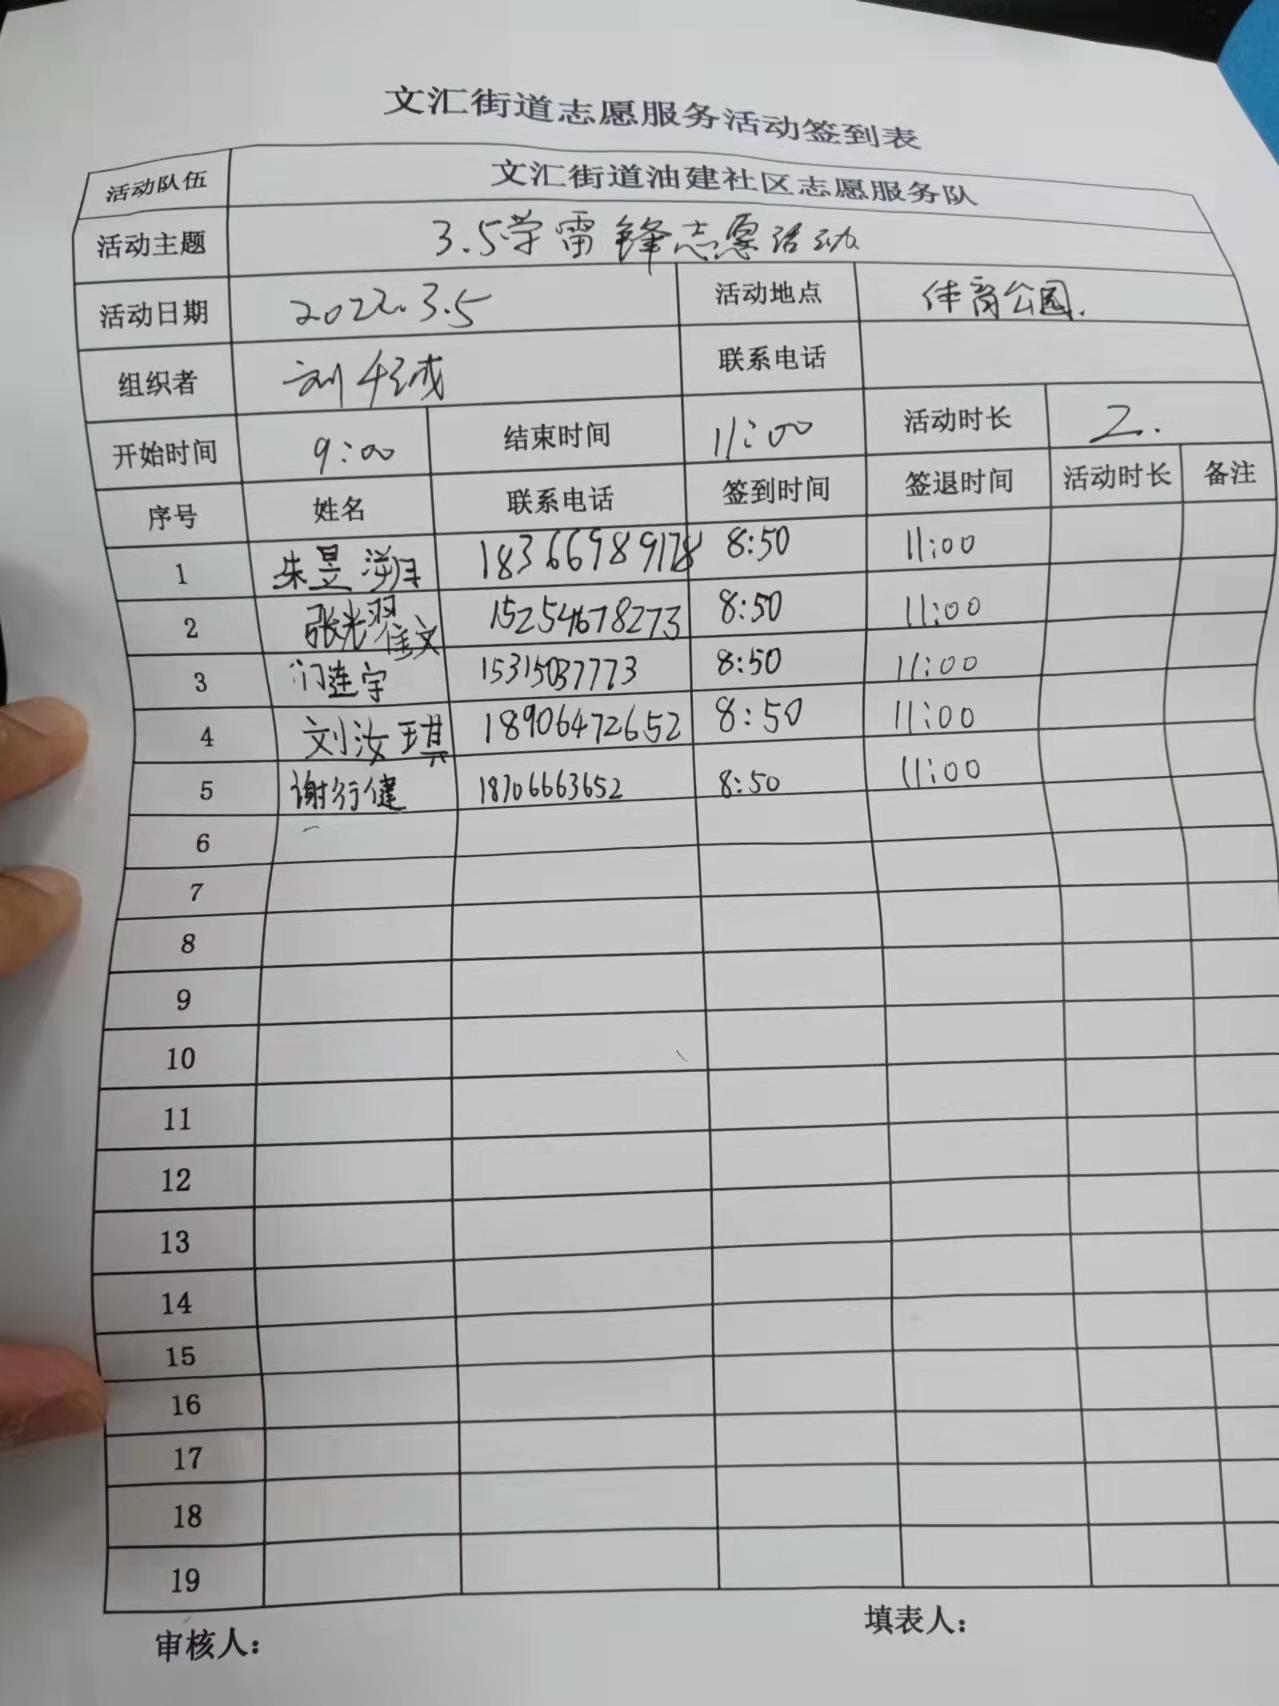 文汇街道志愿服务活动签到表
活动队伍 文汇街道油建社区志愿服务队
活动主题 3.5学雷锋志愿活动
活动日期 2022.3.5 活动地点 体育公园.
组织者 刘 联系电话
开始时间 9:00 结束时间 11:00 活动时长 2.
序号 姓名 联系电话 签到时间 签退时间 活动时长 备注
1 朱昱 18366989178 8:50 11:00
2 张光翟佳文 15254678273 8:50 11:00
3 门连宇 15315037773 8:50 11:00
4 刘汝琪 18906472652 8:50 11:00
5 谢行健 18706663652 8:50 11:00
6
7
8
9
10
11
12
13
14
15
16
17
18
19
审核人: 填表人: